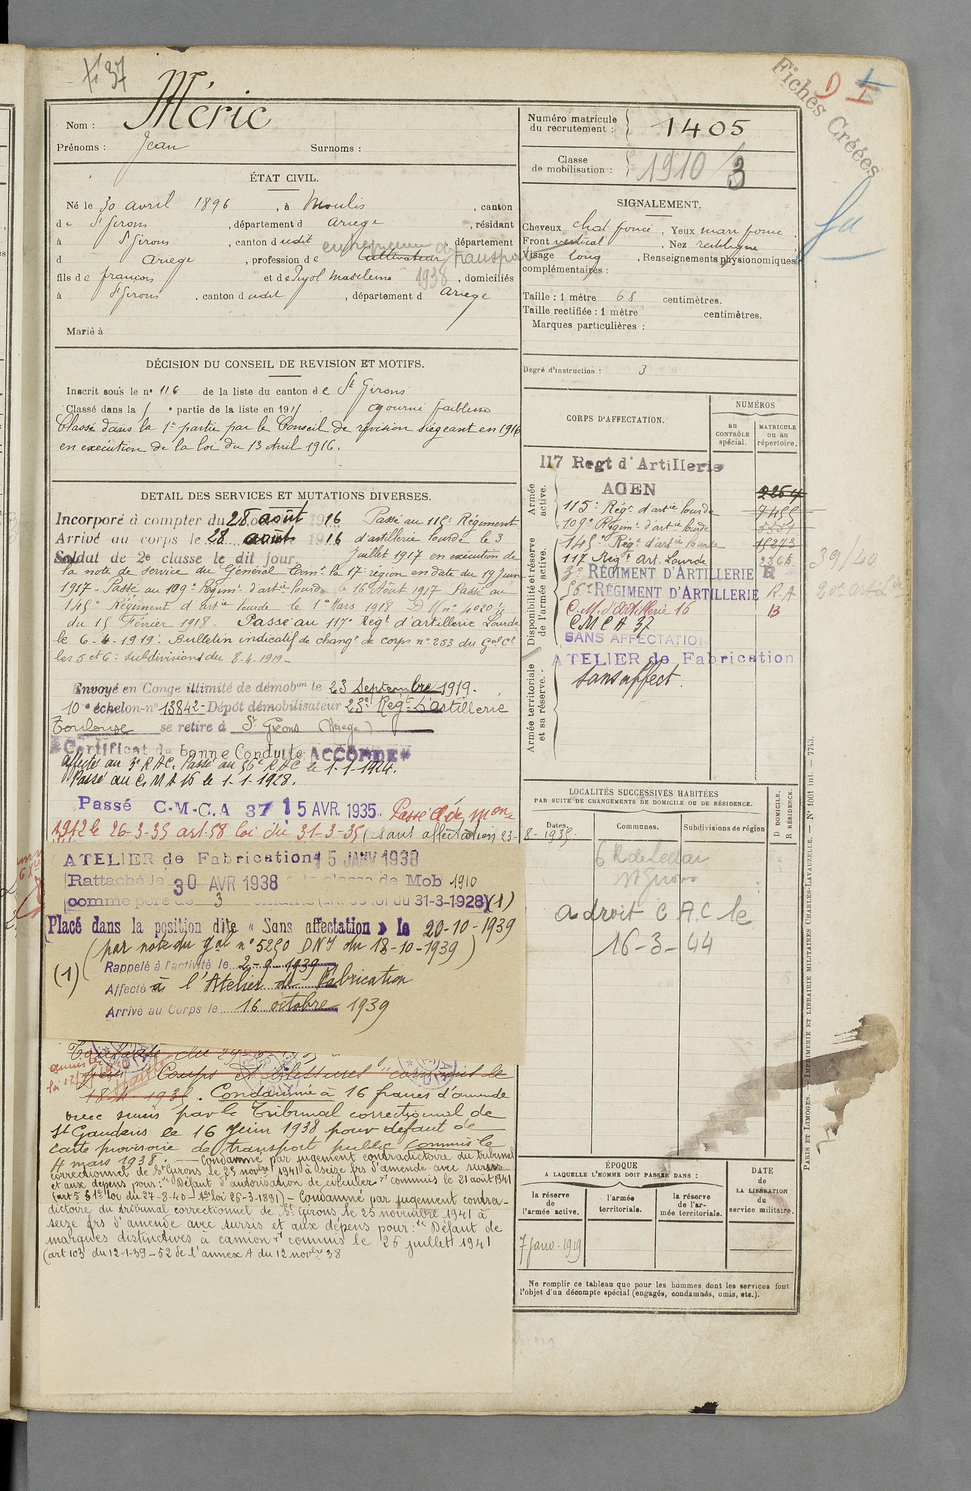 37
Fiches Créées
Nom : Méric
Prénoms : Jean Surnoms :
Numéro matricule du recrutement : 1405
Classe de mobilisation : 1910/3
ÉTAT CIVIL.
Né le 30 avril 1896, à Moulis, canton
de St Girons, département d Ariege, résidant
à St Girons, canton d udit, département
d Ariege, profession de cultivateur
entrepreneur de transport
1938
fils de françois et de Pujol Madeleine, domiciliés
à St Girons, canton d udit, département d Ariege
Marié à
SIGNALEMENT.
Cheveux chat foncé, Yeux marr foncé
Front vertical, Nez rectiligne
Visage long, Renseignements physionomiques
complémentaires :
Taille : 1 mètre 68 centimètres.
Taille rectifiée : 1 mètre centimètres.
Marques particulières :
Degré d'instruction : 3
DÉCISION DU CONSEIL DE REVISION ET MOTIFS.
Inscrit sous le nº 116 de la liste du canton de St Girons
Classé dans la 1 e partie de la liste en 191 ajourné faiblesse
Classé dans la 1e partie par le Conseil de révision siégeant en 1916
en exécution de la loi du 13 Avril 1916.
DETAIL DES SERVICES ET MUTATIONS DIVERSES.
Incorporé à compter du 28 août 1916 Passé au 115e Régiment
Arrivé au corps le 28 août 1916 d'artillerie lourde le 3
Soldat de 2e classe le dit jour Juillet 1917 en exécution de
la note de service du Général Comt la 17e région en date du 19 Juin
1917 - Passé au 109e Régimt d'artie lourde le 16 Août 1917 Passé au
145e Régiment d'artie lourde le 1er Mars 1918 D.M. nº
du 15 Février 1918 - Passé au 117e Régt d'artillerie Lourde
le 6-4-1919. Bulletin indicatif de changt de corps nº 253 du Gal Ct
les 5 et 6e subdivisions du 8-4-1919 -
Envoyé en Congé illimité de démobon le 23 Septembre 1919.
10e échelon - nº 13842 - Dépôt démobilisateur 23e Régt d'artillerie
Toulouse se retire à St Girons (Ariège)
Certificat de bonne Conduite ACCORDE
Affecté au 3e R.A.C. Passé au 56e R.A.C. le 1-1-1924.
Passé au C.M.A 16 le 1-1-1928.
Passé C.M.C.A 37 15 AVR. 1935. Passé clé mon
1912 le 26-3-35 art 58 loi du 31-3-35 (sans affectation 23-8-1935
ATELIER de Fabrication 15 JANV 1938
Rattaché le 30 AVR 1938 à la classe de Mob 1910
comme père de 3 enfants 31-3-1928 (1)
Placé dans la position dite « Sans affectation » le 20-10-1939
(par note du Gal nº 5290 DN7 du 18-10-1939)
(1) Rappelé à l'activité le 2-9-1939
Affecté à l'Atelier de Fabrication
Arrivé au Corps le 16 octobre 1939
18 1935. Condamné à 16 francs d'amende
avec sursis par le Tribunal correctionnel de
St Gaudens le 16 Juin 1938 pour défaut de
carte provisoire de transport public commis le
4 mars 1938. - Condamné par jugement contradictoire du tribunal
correctionnel de St Girons le 25 novbre 1941 à seize frs d'amende avec sursis
et aux dépens pour : "Défaut d'autorisation de circuler" commis le 21 août 1941
(art 5 § 1er loi du 27-8-40 - 1er loi 26-3-1891) - Condamné par jugement contra-
dictoire du tribunal correctionnel de St Girons le 25 novembre 1941 à
seize frs d'amende avec sursis et aux dépens pour : "Défaut de
marques distinctives à camion" commis le 26 juillet 1941
(art 103 du 12-1-39 - 52 de l'annex A du 12 novbre 38
CORPS D'AFFECTATION.
NUMÉROS
au CONTRÔLE spécial.
MATRICULE ou au répertoire.
Armée active.
Disponibilité et réserve de l'armée active.
Armée territoriale et sa réserve.
117 Regt d'Artillerie
AGEN
115e Régt d'artie lourde
109e Régimt d'artie lourde
145e Régt d'artie lourde
117 Régt Art. Lourde
3e RÉGIMENT D'ARTILLERIE R
56e RÉGIMENT D'ARTILLERIE R.A
C.M. d'Artillerie 16 B
C M C A 37
SANS AFFECTATION
ATELIER de Fabrication
Sans affect.
39/40
LOCALITÉS SUCCESSIVES HABITÉES
PAR SUITE DE CHANGEMENTS DE DOMICILE OU DE RÉSIDENCE.
Dates. Communes. Subdivisions de région
D DOMICILE.
R RÉSIDENCE.
St Girons
a droit C.A.C le
16-3-44
ÉPOQUE
A LAQUELLE L'HOMME DOIT PASSER DANS :
la réserve de l'armée active.
l'armée territoriale.
la réserve de l'armée territoriale.
DATE DE LA LIBÉRATION du service militaire.
7 janv. 1919
Ne remplir ce tableau que pour les hommes dont les services font
l'objet d'un décompte spécial (engagés, condamnés, omis, etc.).
PARIS ET LIMOGES. — IMPRIMERIE ET LIBRAIRIE MILITAIRES CHARLES-LAVAUZELLE. — Nº 1001 int. — 7743.